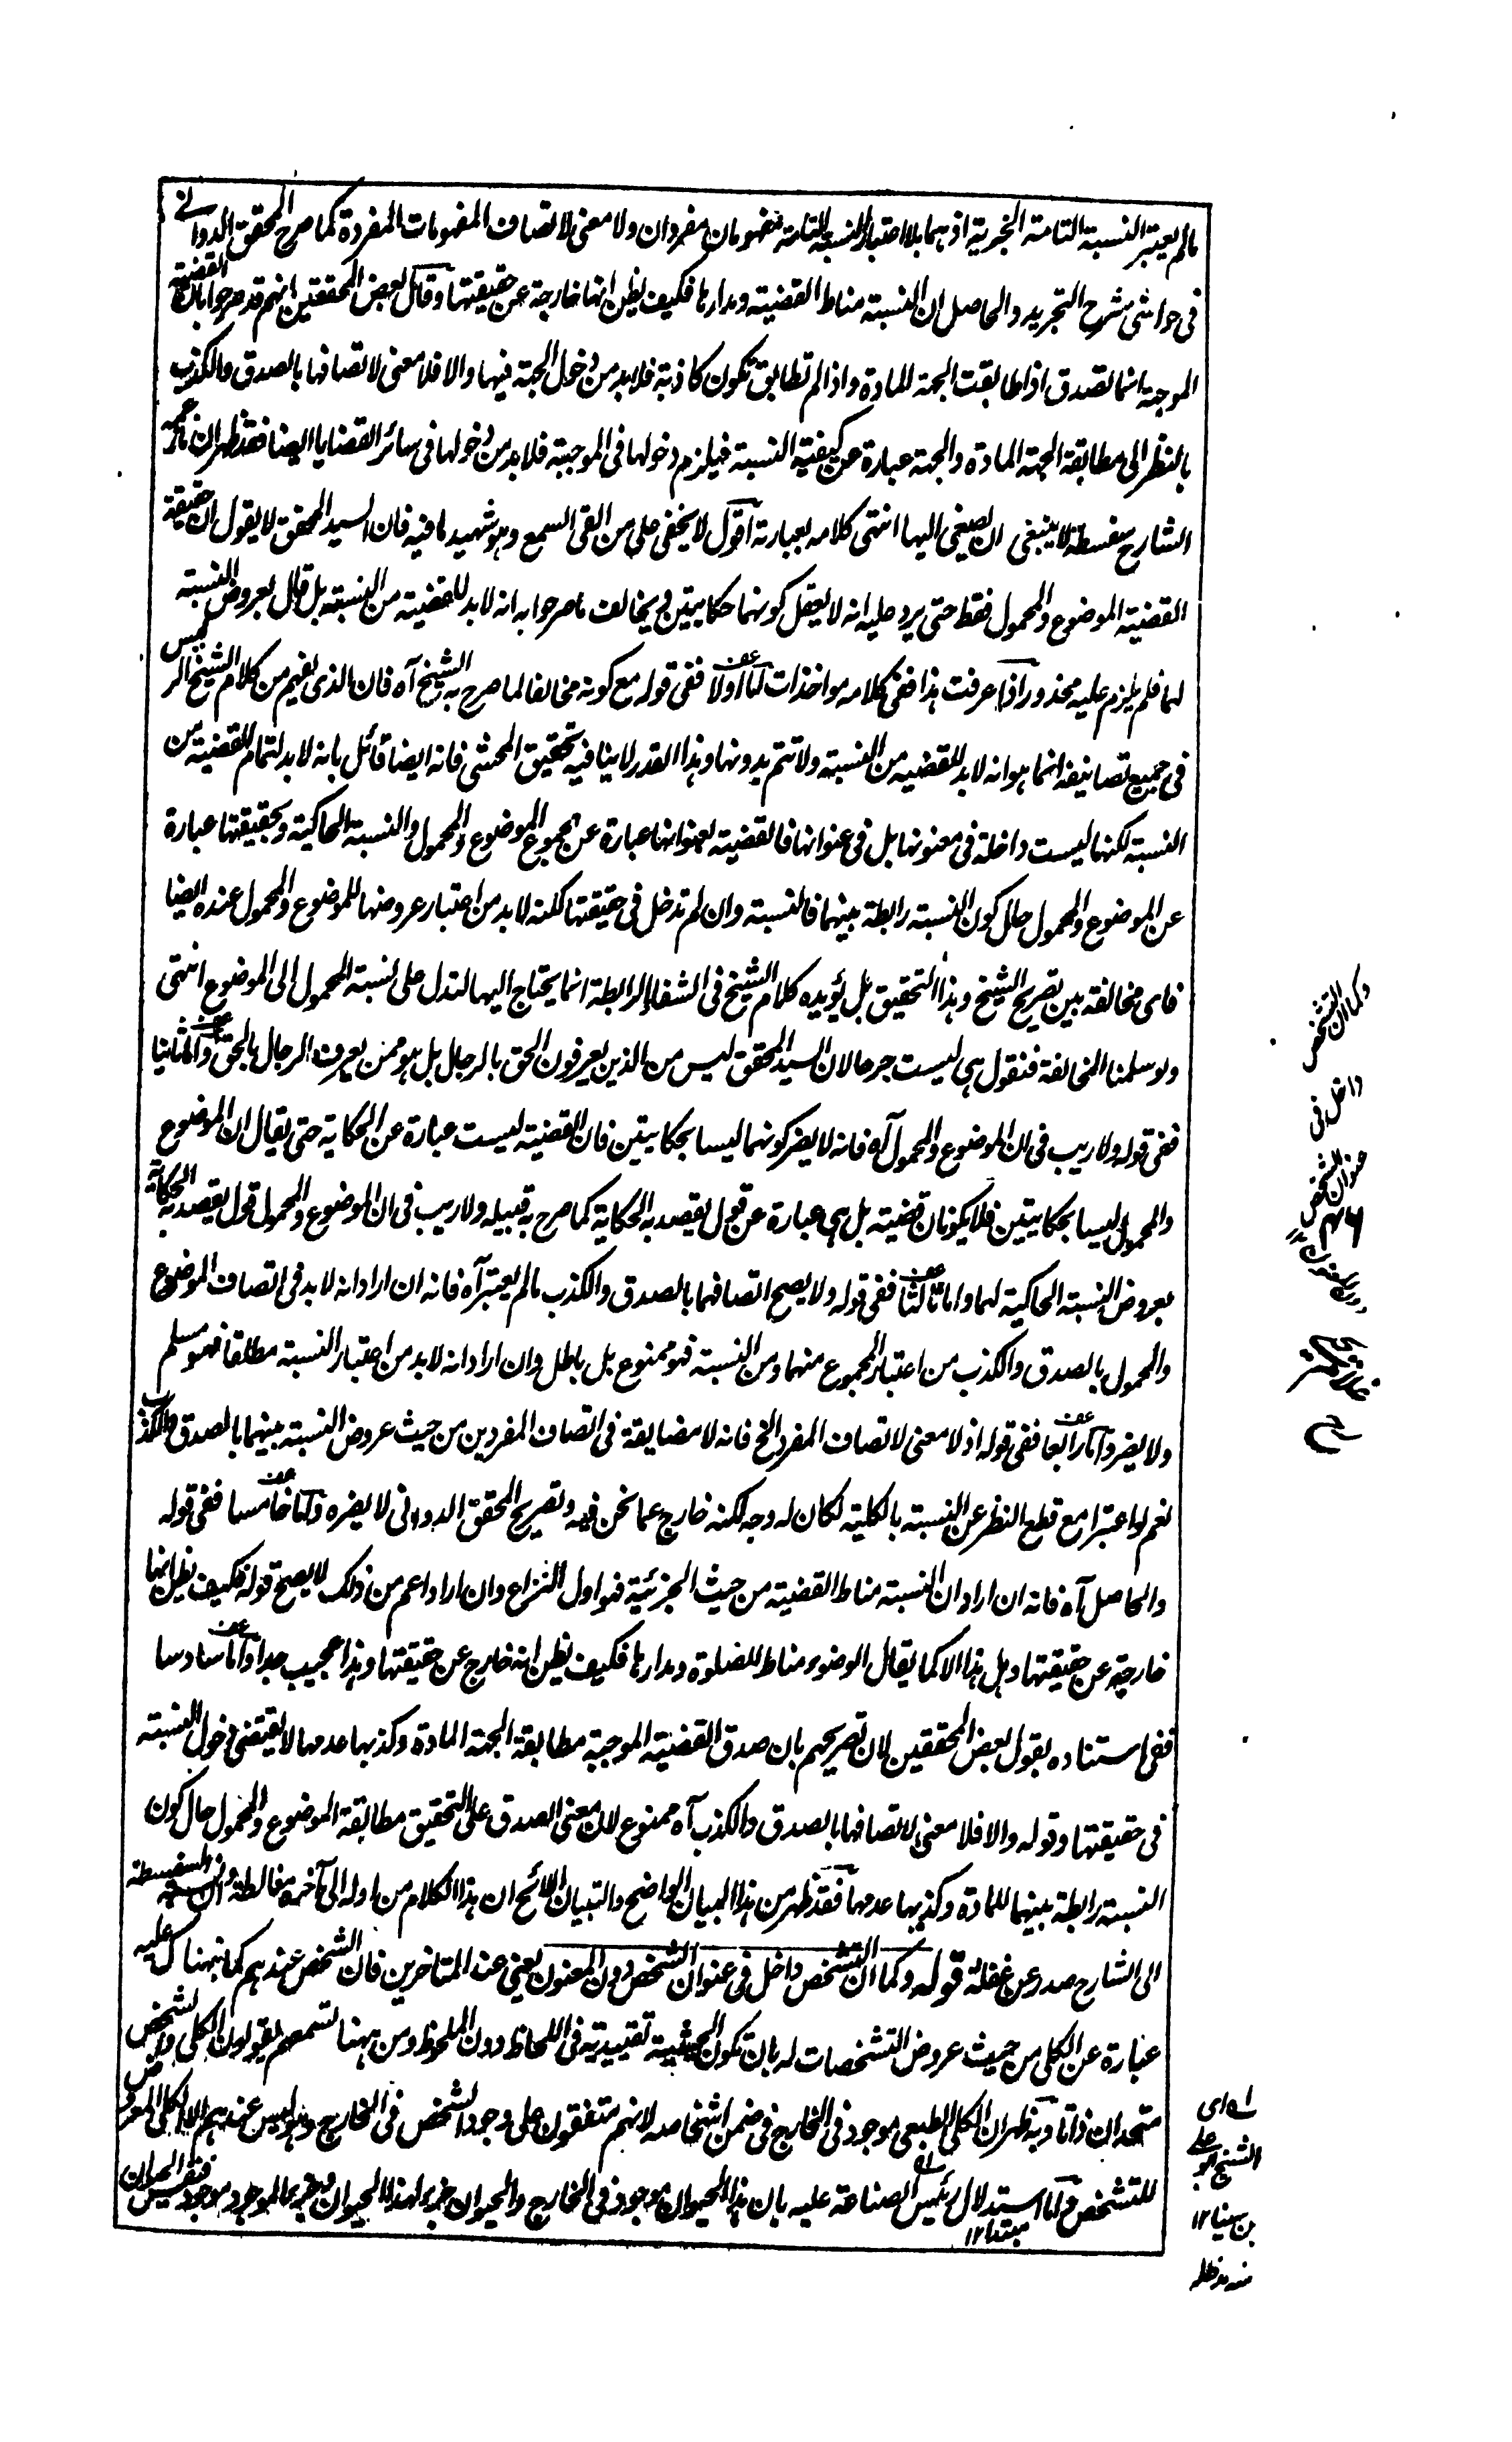 مالم يعتبر النسبة التامة الخبرية اذ هما بلا اعتبار النسبة التامة مفهومان مفردان ولا معنى لاتصاف المفهومات المفردة كما صرح المحقق الدوانى
فى حواشى شرح التجريد والحاصل ان النسبة مناط القضية ومدارها فكيف يظن انها خارجة عن حقيقتها وقال بعض المحققين انهم قد صرحوا بان القضية
الموجهة انما تصدق اذا طابقت الجهة للمادة واذا لم تطابق تكون كاذبة فلابد من دخول الجهة فيها والا فلا معنى لاتصافها بالصدق والكذب
بالنظر الى مطابقة الجهة المادة والجهة عبارة عن كيفية النسبة فيلزم دخولها فى الموجهة فلابد من دخولها فى سائر القضايا ايضا فقد ظهر ان ما زعمه
الشارح سفسطة لا ينبغى ان يصغى اليها انتهى كلامه بعبارته اقول لا يخفى على من القى السمع وهو شهيد ما فيه فان السيد المحقق لا يقول ان حقيقة
القضية الموضوع والمحمول فقط حتى يرد عليه انه لا يعقل كونهما حكايتين ويخالف ما صرحوا به انه لابد للقضية من النسبة بل قال بعروض النسبة
لهما فلم يلزم عليه محذور اذا عرفت هذا ففى كلامه مواخذات اما اولا ففى قوله مع كونه مخالفا لما صرح به الشيخ آه فان الذى يفهم من كلام الشيخ الرئيس
فى جميع تصانيفه انما هو انه لابد للقضيه من النسبته ولا تتم بدونها وهذا القدر لا ينافيه تحقيق المحشى فانه ايضا قائل بانه لابد لتمام القضية من
النسبة لكنها ليست داخلة فى معنونها بل فى عنوانها فالقضية بعنوانها عبارة عن مجموع الموضوع والمحمول والنسبة الحاكية وبحقيقتها عبارة
عن الموضوع والمحمول حال كون النسبة رابطة بينهما فالنسبة وان لم تدخل فى حقيقتها لكنه لابد من اعتبار عروضها للموضوع والمحمول عنده ايضا
فاى مخالفة بين تصريح الشيخ وهذا التحقيق بل يؤيده كلام الشيخ فى الشفاء الرابطة انما يحتاج اليها لتدل على نسبة المحمول الى الموضوع انتهى
ولو سلمنا المخالفة فنقول هى ليست جرحا لان السيد المحقق ليس من الذين يعرفون الحق بالرجال بل هو ممن يعرف الرجال بالحق واما ثانيا
ففى قوله ولا ريب فى ان الموضوع والمحمول آه فانه لا يضر كونهما ليسا بحكايتين فان القضية ليست عبارة عن الحكاية حتى يقال ان الموضوع
والمحمول ليسا بحكايتين فلا يكونان قضية بل هى عبارة عن قول يقصد به الحكاية كما صرح به قبيله ولا ريب فى ان الموضوع والمحمول قول يقصد به الحكاية
بعروض النسبة الحاكية لهما واما ثالثا ففى قوله ولا يصح اتصافهما بالصدق والكذب مالم يعتبر آه فانه ان اراد انه لابد فى اتصاف الموضوع
والمحمول بالصدق والكذب من اعتبار المجموع منهما ومن النسبة فهو ممنوع بل باطل وان اراد انه لابد من اعتبار النسبة مطلقا فهو مسلم
ولا يضر واما رابعا ففى قوله اذ لا معنى لاتصاف المفرد الخ فانه لا مضايقة فى اتصاف المفردين من حيث عروض النسبة بينهما بالصدق والكذب
نعم لو اعتبرا مع قطع النظر عن النسبة بالكلية لكان له وجه لكنه خارج عما نحن فيه وتصريح المحقق الدوانى لا يضره واما خامسا ففى قوله
والحاصل آه فانه ان اراد ان النسبة مناط القضية من حيث الجزئية فهو اول النزاع وان اراد اعم من ذلك لا يصح قوله فكيف يظن انها
خارجة عن حقيقتها وهل هذا الا كما يقال الوضوء مناط للصلوة ومدارها فكيف يظن انه خارج عن حقيقتها وهذا عجيب جدا واما سادسا
ففى استناده بقول بعض المحققين لان تصريحهم بان صدق القضية الموجهة مطابقة الجهة المادة وكذبها عدمها لا يقتضى دخول النسبة
فى حقيقتها وقوله والا فلا معنى لاتصافها بالصدق والكذب آه ممنوع لان معنى الصدق على التحقيق مطابقة الموضوع والمحمول حال كون
النسبة رابطة بينهما للمادة وكذبها عدمها فقد ظهر من هذا البيان الواضح والتبيان اللائح ان هذا الكلام من اوله الى آخره مغالطة وان نسبة السفسطة
الى الشارح صدر عن غفلة قوله وكما ان التشخص داخل فى عنوان الشخص دون المعنون يعنى عند المتاخرين فان الشخص عندهم كما نبهناك عليه
عبارة عن الكلى من حيث عروض التشخصات له بان تكون الحيثية تقييدية فى اللحاظ دون الملحوظ ومن ههنا تسمعهم يقولون الكلى والشخص
متحدان ذاتا وبه ظهر ان الكلى الطبعى موجود فى الخارج فى ضمن اشخاصه لانهم متفقون على وجود الشخص فى الخارج وهو ليس عندهم الا الكلى المعروض
للتشخص واما استدلال رئيس الصناعة عليه بان هذا الحيوان موجود فى الخارج والحيوان جزء لهذا الحيوان وجزء الموجود موجود فنفس الحيوان
مبتدا ١٢
وكما ان التشخص
داخل فى
عنوان الشخص
دون المعنون
ا‍ه اى
الشيخ ابو على
بن سينا ١٢
منه مدظله